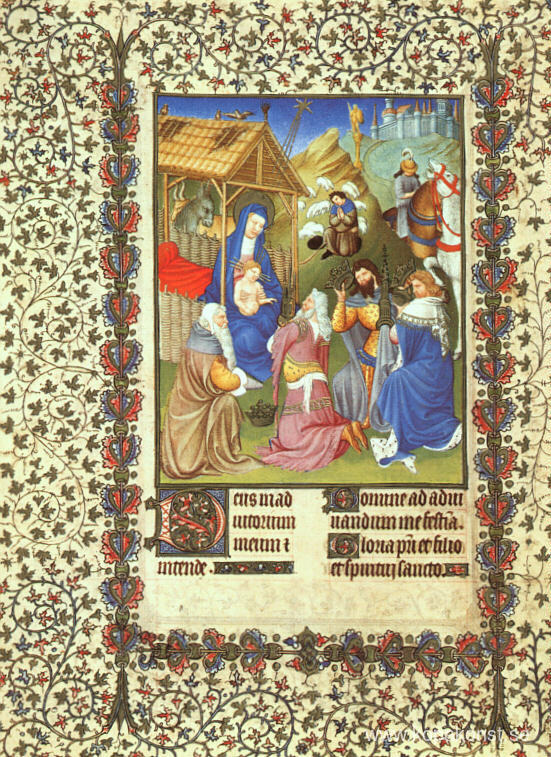 Deus in ad
iutorium
meum i
intende.
Domine ad adiu
uandum me festīa.
Gloria pr̄i et filio
et spiritui sancto.
www.kopiakonst.se